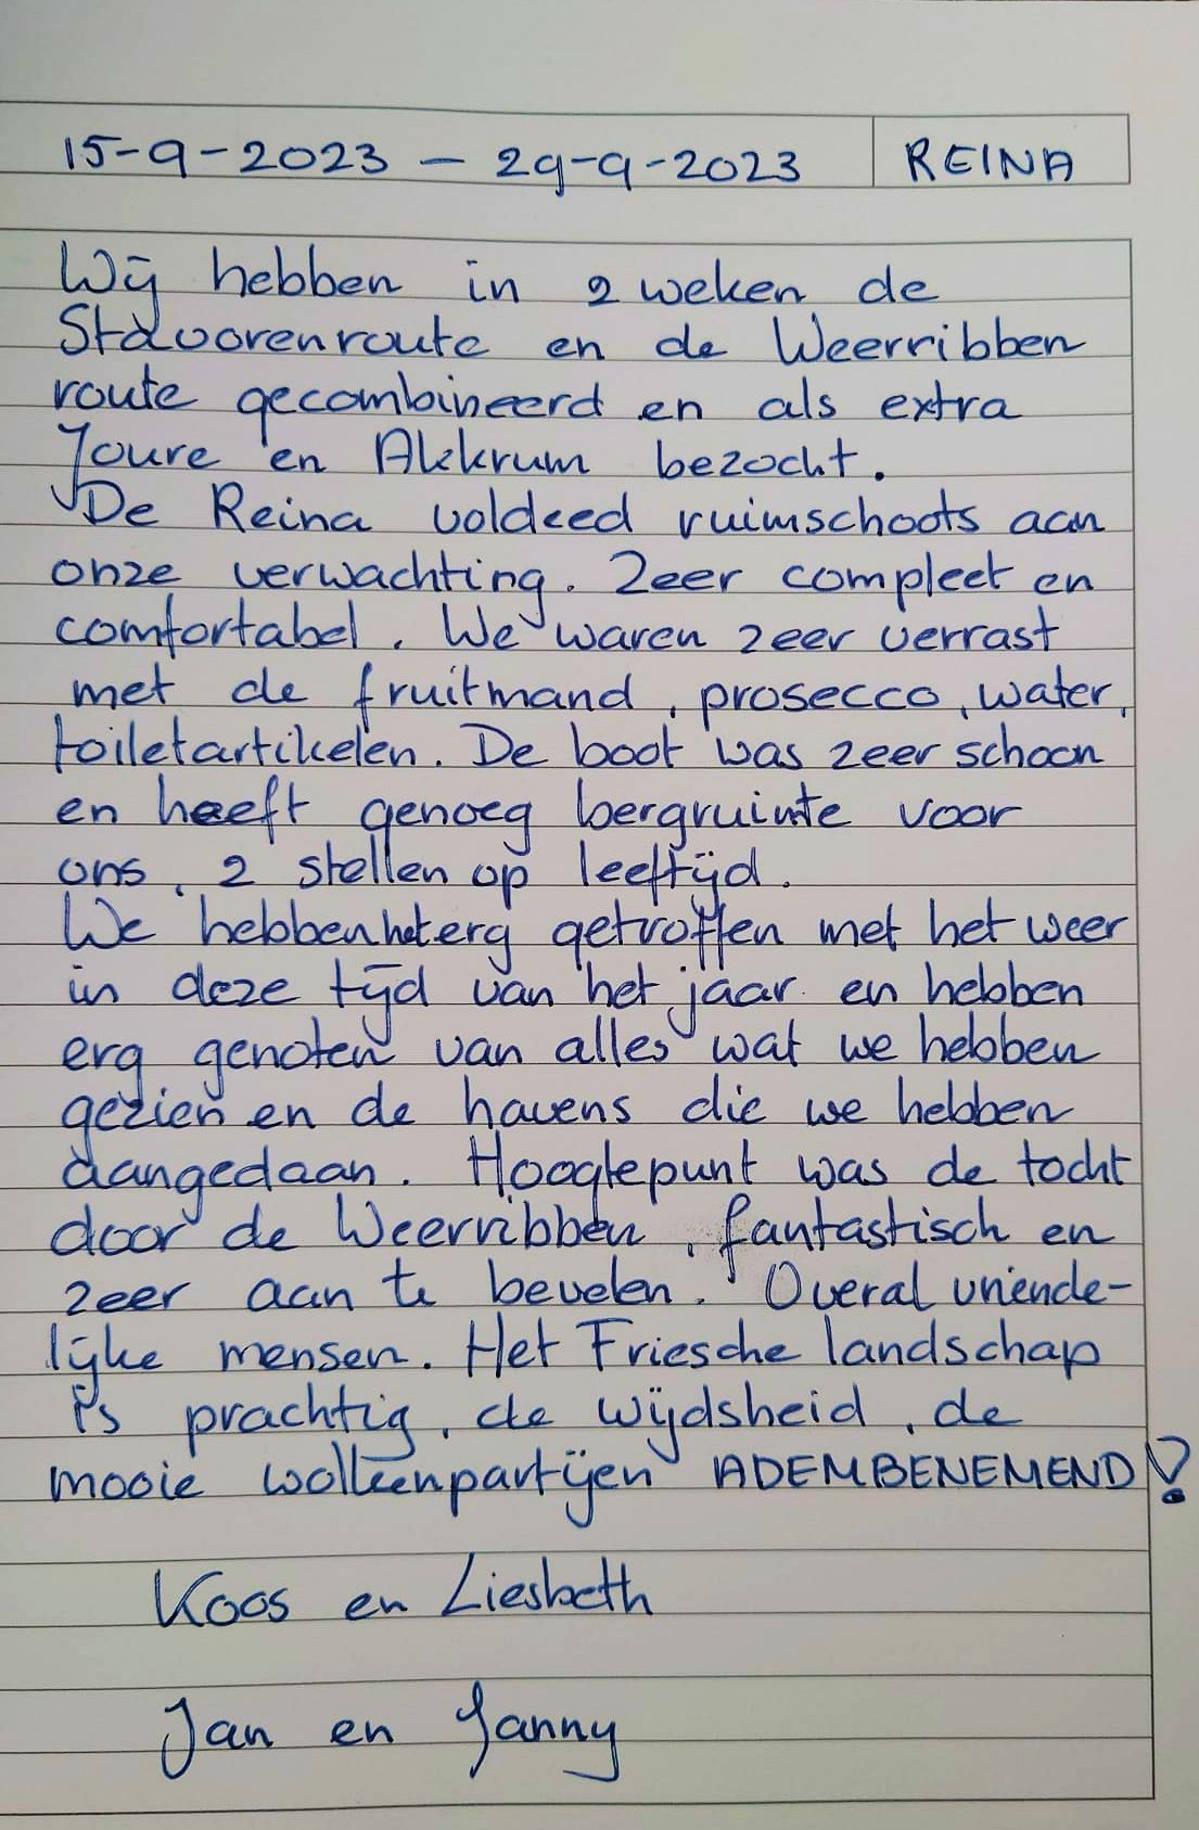 15-9-2023 - 29-9-2023 REINA
Wij hebben in 2 weken de
Stavorenroute en de Weerribben
route gecombineerd en als extra
Joure en Akkrum bezocht.
De Reina voldeed ruimschoots aan
onze verwachting. Zeer compleet en
comfortabel. We waren zeer verrast
met de fruitmand, prosecco, water,
toiletartikelen. De boot was zeer schoon
en heeft genoeg bergruimte voor
ons, 2 stellen op leeftijd.
We hebben het erg getroffen met het weer
in deze tijd van het jaar en hebben
erg genoten van alles wat we hebben
gezien en de havens die we hebben
aangedaan. Hoogtepunt was de tocht
door de Weerribben, fantastisch en
zeer aan te bevelen. Overal vriende-
lijke mensen. Het Friesche landschap
is prachtig, de wijdsheid, de
mooie wolkenpartijen ADEMBENEMEND!
Koos en Liesbeth
Jan en Janny